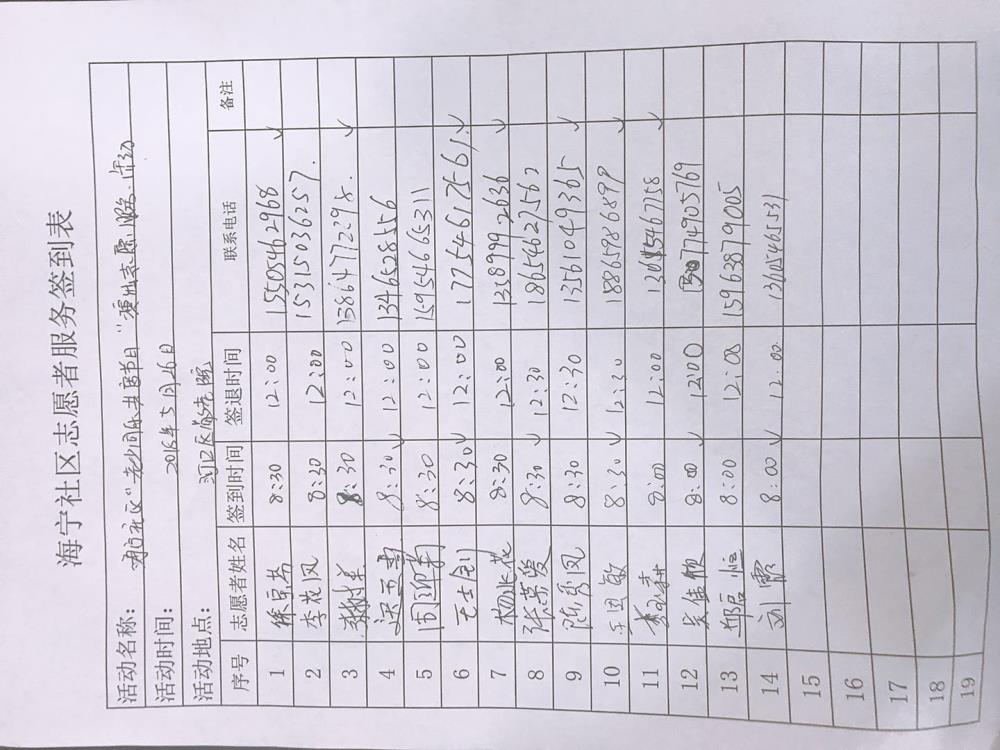 海宁社区志愿者服务签到表
活动名称： 海宁社区"老少同乐 共度节日"夏城志愿服务活动
活动时间： 2018年5月26日
活动地点： 河口区敬老院
序号 志愿者姓名 签到时间 签退时间 联系电话 备注
1 徐京芬 8:30 12:00 15505462968
2 李花风 8:30 12:00 15315036257.
3 8:30 12:00 13864772298.
4 8:30 12:00 13465285556
5 周迎春 8:30 12:00 15954665311
6 王士剑 8:30 12:00 17754617561.
7 杨兆花 8:30 12:00 13589992636
8 张荣爱 8:30 12:30 18654627562
9 陈秀凤 8:30 12:30 13561049365
10 敏 8:30 12:30 18865986899
11 8:00 12:00
12 吴佳欣 8:00 12:00
13 郑启恒 8:00 12:00 15963879005
14 刘霞 8:00 12:00 13105465531
15
16
17
18
19